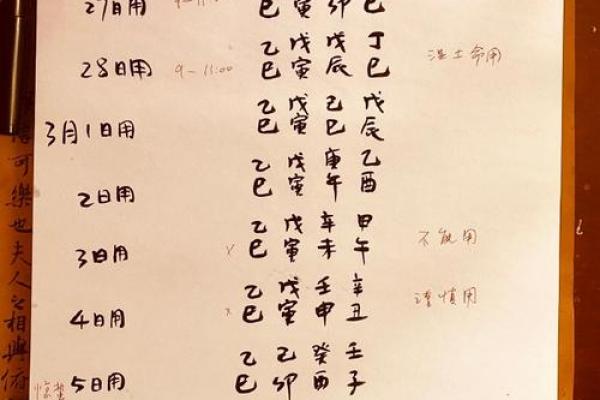 27日用 9-11:00
巳 寅 卯 巳
乙 戊 戊 丁
28日用 9-11:00 巳 寅 辰 巳 湿土命用
乙 戊 己 戊
3月1日用 巳 寅 巳 辰
乙 戊 庚 乙
2日用 巳 寅 午 酉
乙 戊 辛 甲
3日用 x 巳 寅 未 午 不能用
乙 戊 壬 辛
4日用 x 巳 寅 申 丑 谨慎用
乙 己 癸 壬
惊蛰 5日用 巳 卯 酉 子
可樂也夫人之相與俯